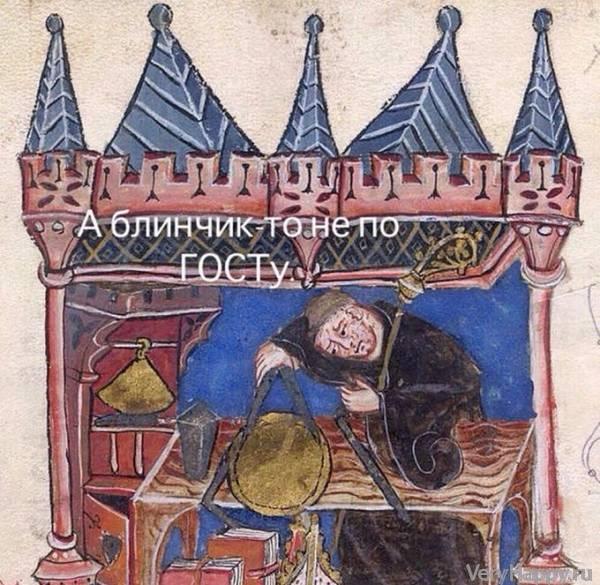 А блинчик-то не по
ГОСТу.
VeryHappy.ru